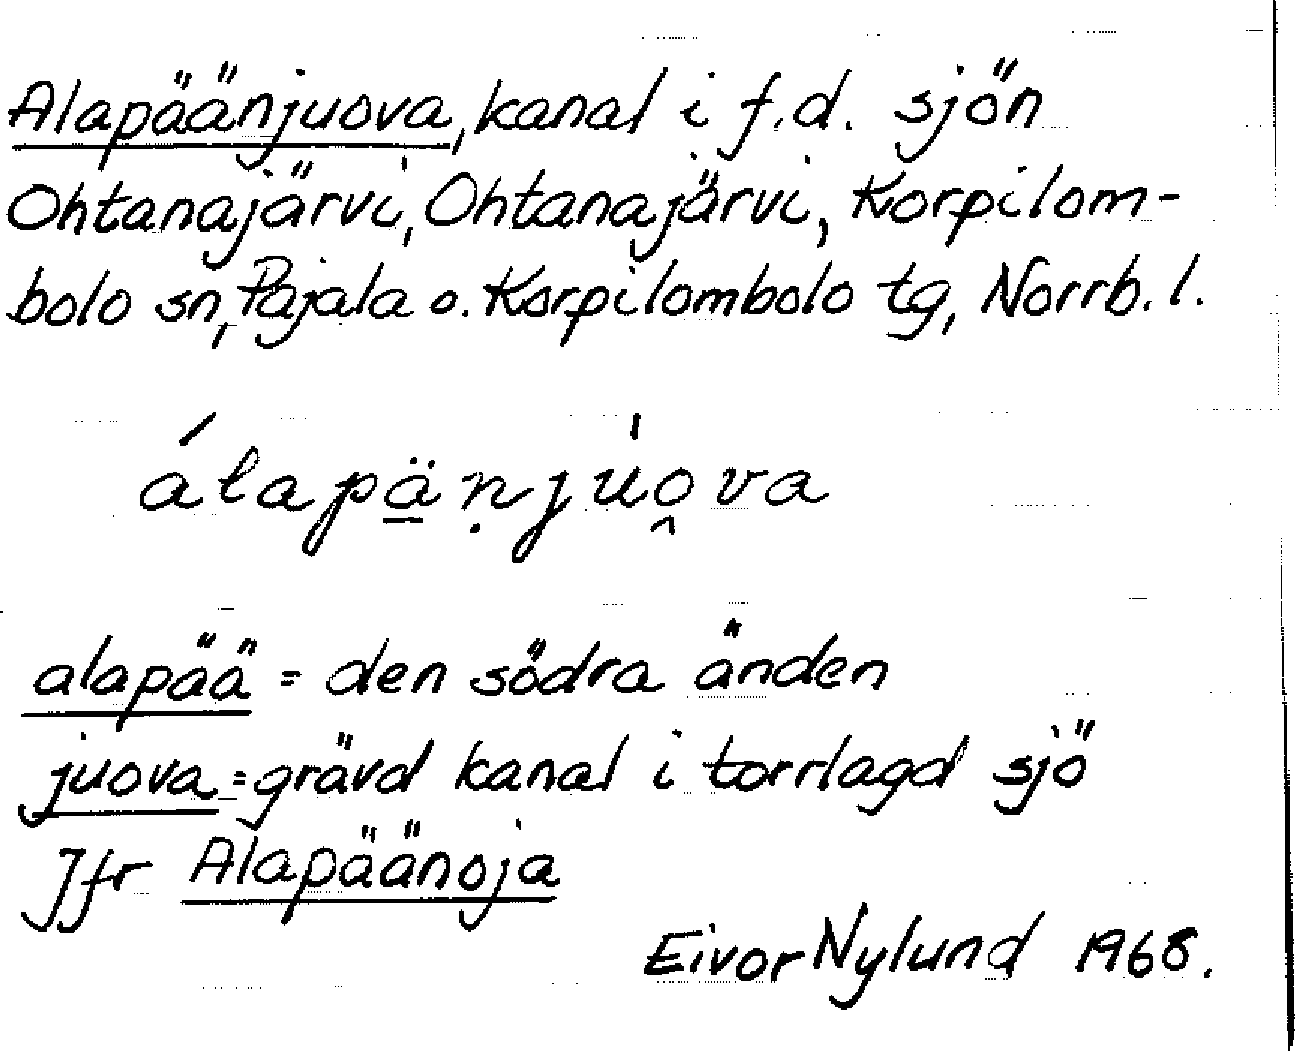 Alapäänjuova, kanal i f.d. sjön
Ohtanajärvi, Ohtanajärvi, Korpilom-
bolo sn, Pajala o. Korpilombolo tg, Norrb. l.
álapä̱ṇjúo̭va
alapää = den södra änden
juova = grävd kanal i torrlagd sjö
Jfr Alapäänoja
Eivor Nylund 1968.